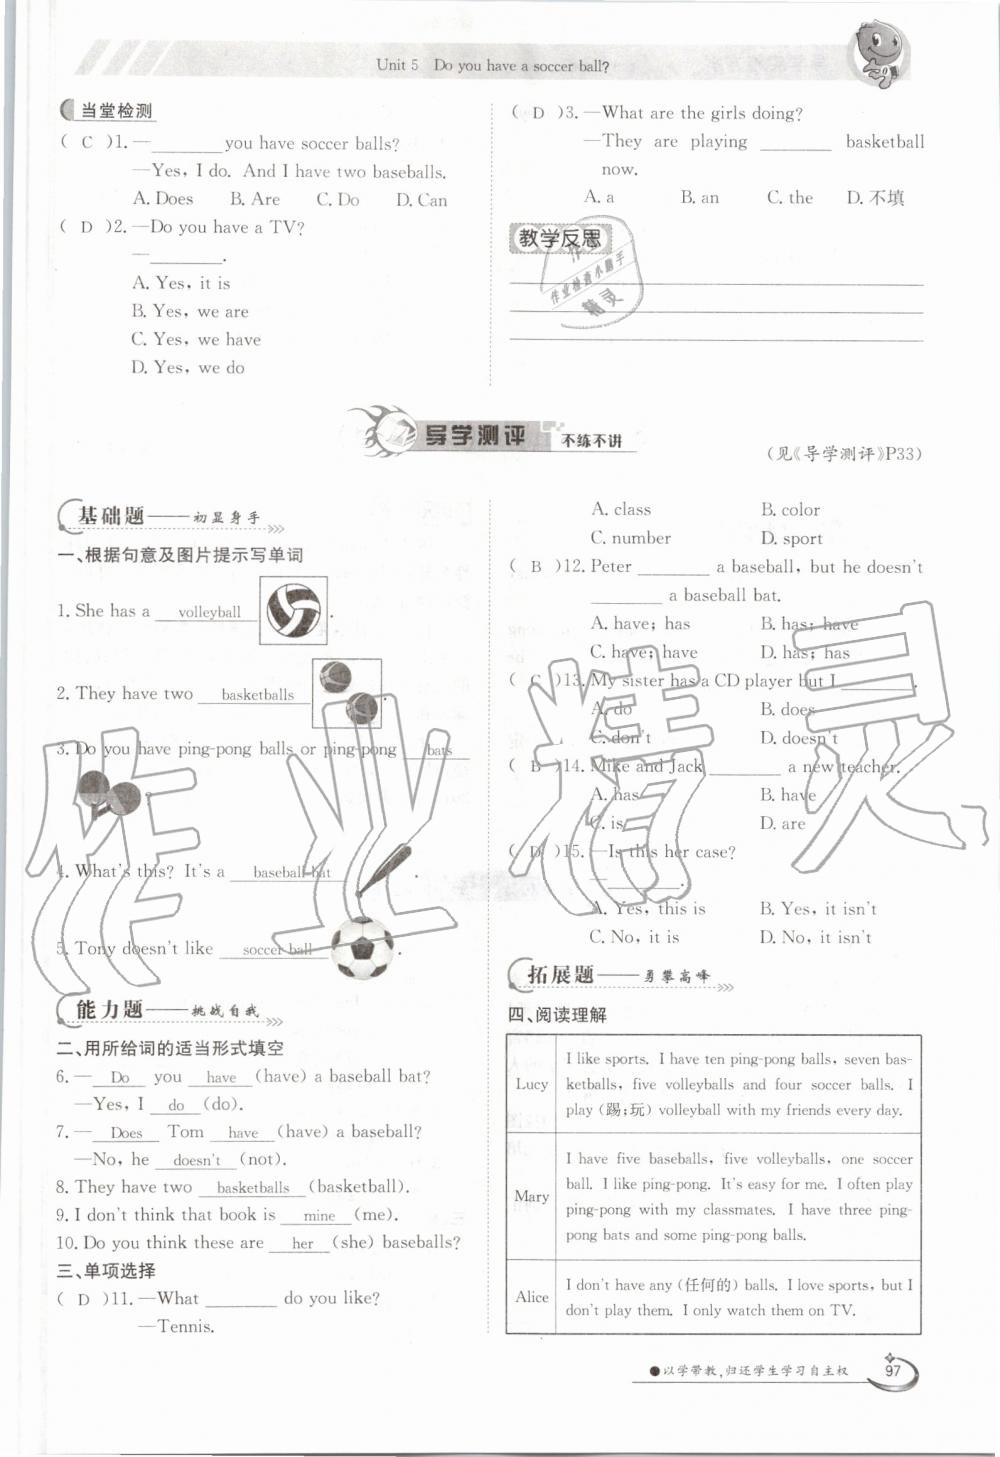 Unit 5 Do you have a soccer ball?
当堂检测
( C )1. —________you have soccer balls?
—Yes, I do. And I have two baseballs.
A. Does B. Are C. Do D. Can
( D )2. —Do you have a TV?
—________.
A. Yes, it is
B. Yes, we are
C. Yes, we have
D. Yes, we do
( D )3. —What are the girls doing?
—They are playing ________ basketball
now.
A. a B. an C. the D. 不填
教学反思
作业检查小助手
精灵
导学测评 不练不讲
(见《导学测评》P33)
基础题——初显身手
一、根据句意及图片提示写单词
1. She has a volleyball .
2. They have two basketballs .
3. Do you have ping-pong balls or ping-pong bats
?
4. What's this? It's a baseball bat .
5. Tony doesn't like soccer ball .
能力题——挑战自我
二、用所给词的适当形式填空
6. — Do you have (have) a baseball bat?
—Yes, I do (do).
7. — Does Tom have (have) a baseball?
—No, he doesn't (not).
8. They have two basketballs (basketball).
9. I don't think that book is mine (me).
10. Do you think these are her (she) baseballs?
三、单项选择
( D )11. —What ________ do you like?
—Tennis.
A. class B. color
C. number D. sport
( B )12. Peter ________ a baseball, but he doesn't
________ a baseball bat.
A. have; has B. has; have
C. have; have D. has; has
( C )13. My sister has a CD player but I ________.
A. do B. does
C. don't D. doesn't
( B )14. Mike and Jack ________ a new teacher.
A. has B. have
C. is D. are
( D )15. —Is this her case?
—________.
A. Yes, this is B. Yes, it isn't
C. No, it is D. No, it isn't
拓展题——勇攀高峰
四、阅读理解
Lucy
I like sports. I have ten ping-pong balls, seven bas-
ketballs, five volleyballs and four soccer balls. I
play (踢;玩) volleyball with my friends every day.
Mary
I have five baseballs, five volleyballs, one soccer
ball. I like ping-pong. It's easy for me. I often play
ping-pong with my classmates. I have three ping-
pong bats and some ping-pong balls.
Alice
I don't have any (任何的) balls. I love sports, but I
don't play them. I only watch them on TV.
●以学带教,归还学生学习自主权
97
作业精灵